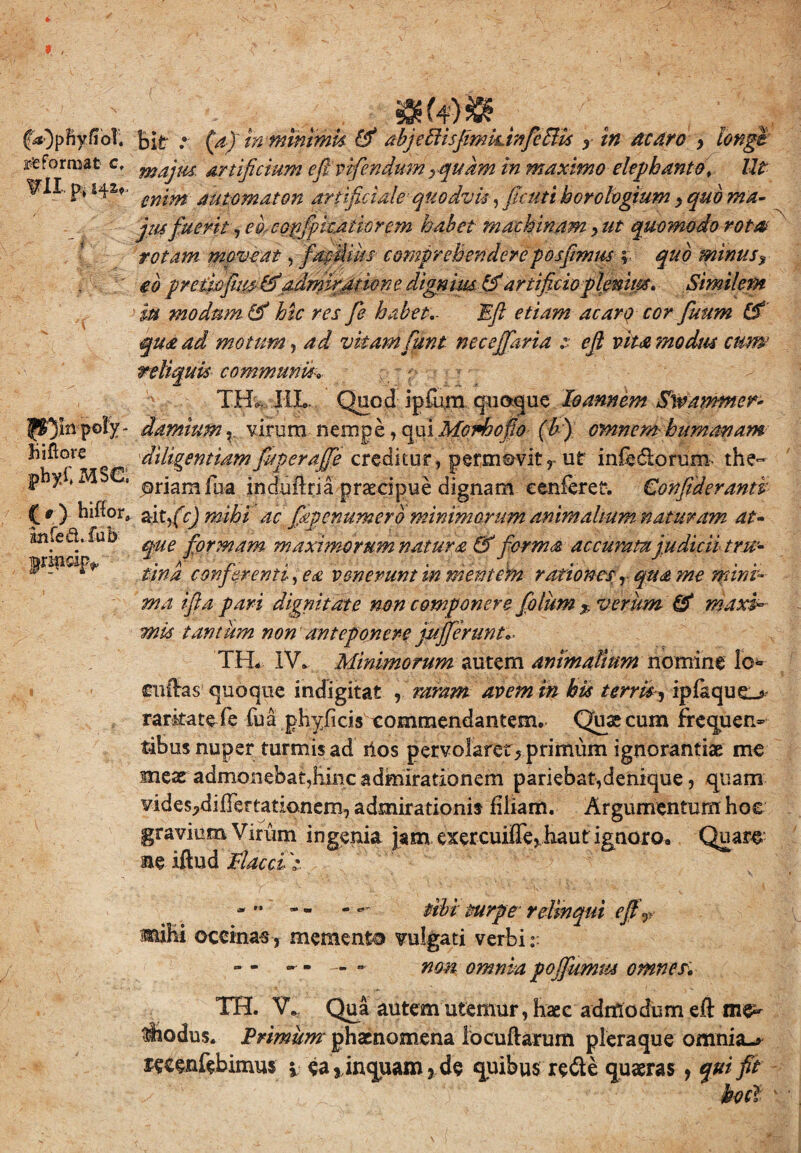 (4)
(a) phyſiol.
reformat c.
VII. p. 142.
bit : (a) in minimis & abjectisſimis inſectis, in acaro, longè
majus artificium eſt viſendum, quàm in maximo elephanto. Ut
enim automaton artificiale quodvis, ſicuti horologium, quò ma-
jus fuerit, eò conſpicatiorem habet machinam, ut quomodo rota
rotam moveat, faciliùs comprehendere posſimus; quò minus,
eò pretioſius & admiratione dignius & artificio plenius. Similem
in modum & hîc res ſe habet. Eſt etiam acaro cor ſuum &
quæ ad motum, ad vitam ſunt neceſſaria : eſt vitæ modus cum
reliquis communis.
TH. III. Quod ipſum quoque Ioannem Swammer-
(b) in poly-
hiſtore
phyſ. MSC.
(c) hiſtor.
inſect. ſub
princip.
damium, virum nempe, qui Morhofio (b) omnem humanam
diligentiam ſuperaſſe creditur, permovit, ut inſectorum the-
oriam ſua induſtriâ præcipuè dignam cenſeret. Conſideranti
ait, (c) mihi ac ſæpenumerò minimorum animalium naturam at-
que formam maximorum naturæ & formæ accuratâ judicii tru-
tinâ conferenti, eæ venerunt in mentem rationes, quæ me mini-
ma iſta pari dignitate non componere ſolùm, verùm & maxi-
mis tantùm non anteponere juſſerunt.
TH. IV. Minimorum autem animalium nomine lo-
cuſtas quoque indigitat, raram avem in his terris, ipſaque
raritate ſe ſuâ phyſicis commendantem. Quæ cum frequen-
tibus nuper turmis ad nos pervolaret, primùm ignorantiæ me
meæ admonebat, hinc admirationem pariebat, denique, quam
vides, diſſertationem, admirationis filiam. Argumentum hoc
gravium Virûm ingenia jam exercuiſſe, haut ignoro. Quare
ne iſtud Flacci :
- - - - - - tibi turpe relinqui eſt,
mihi occinas, memento vulgati verbi :
- - - - - - non omnia poſſumus omnes.
TH. V. Quâ autem utemur, hæc admodum eſt me-
thodus. Primùm phænomena locuſtarum pleraque omnia
recenſebimus ; ea, inquam, de quibus rectè quæras, qui fit
hoc?